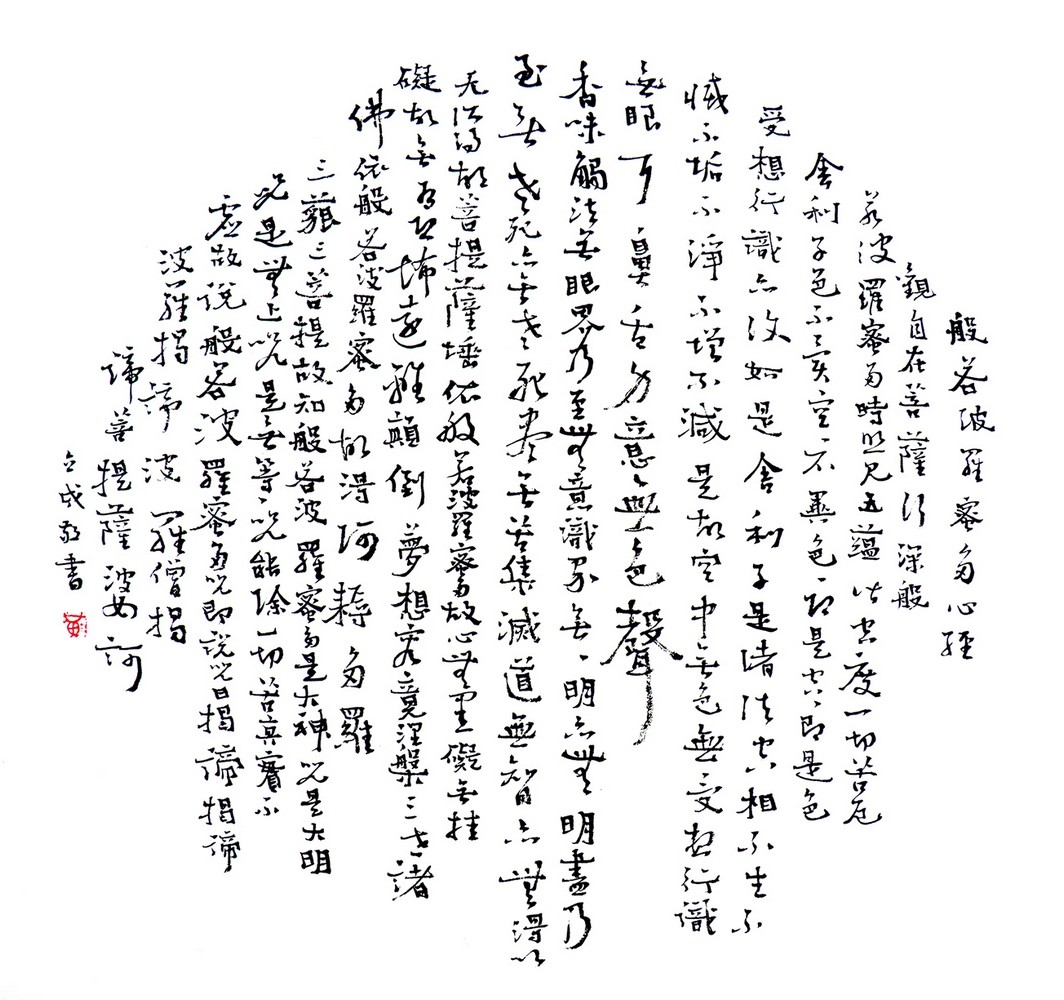 般若波羅蜜多心經
觀自在菩薩行深般
若波羅蜜多時照見五蘊皆空度一切苦厄
舍利子色不異空不異色、即是空、即是色
受想行識亦復如是舍利子是諸法空相不生不
滅不垢不淨不增不減是故空中無色無受想行識
無眼耳鼻舌身意無色聲
香味觸法無眼界乃至無意識界無、明亦無明盡乃
至無老死亦無老死盡無苦集滅道無智亦無得以
无所得故菩提薩埵依般若波羅蜜多故心無罣礙無挂
礙故無有恐怖遠離顛倒夢想究竟涅槃三世諸
佛依般若波羅蜜多故得阿耨多羅
三藐三菩提故知般若波羅蜜多是大神咒是大明
咒是無上咒是無等咒能除一切苦真實不
虛故說般若波羅蜜多咒即說咒曰揭諦揭諦
波羅揭諦波羅僧揭
諦菩提薩婆訶
敬書
黃